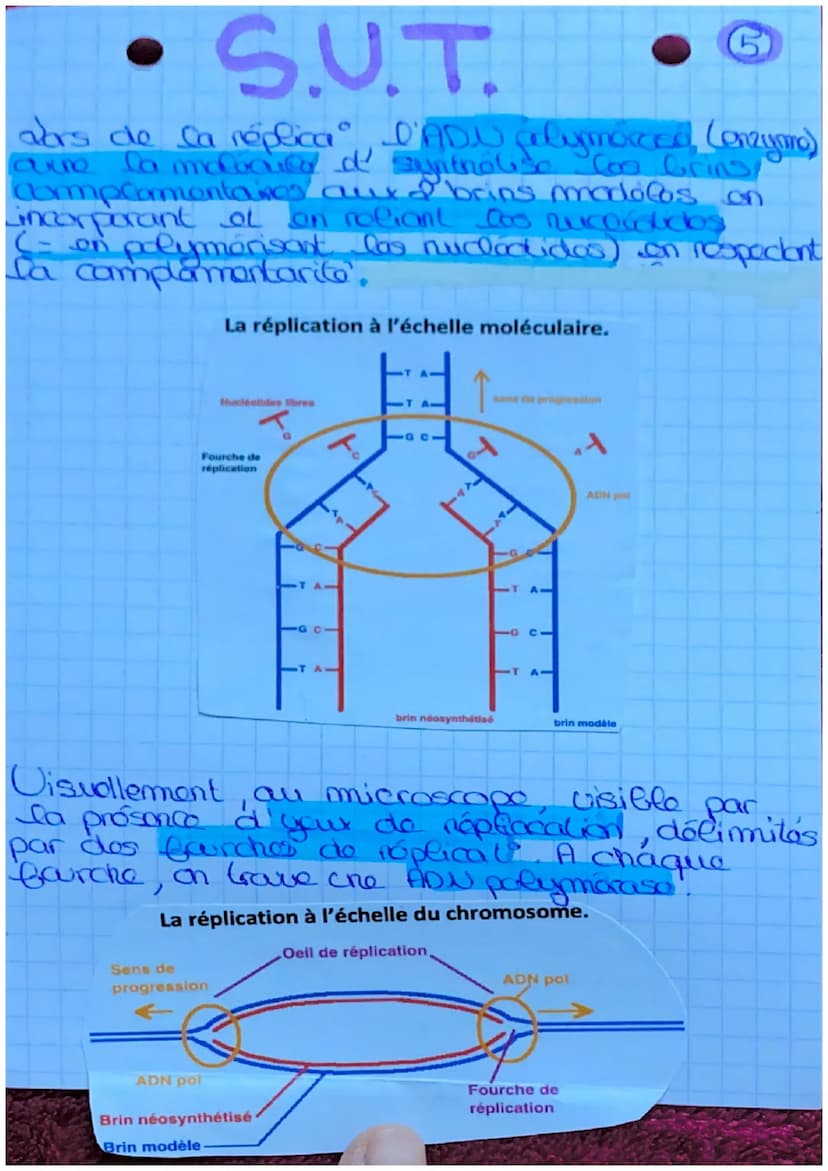 S.V.T.
5
lors de la réplica° l'ADN polymérase (enzyme)
ouvre la molécule d' synthétise les brins
complémentaires aux 2 brins modèles en
incorparant et en reliant les nucléotides
(= en polymérisant les nucléotides) en respectant
la complémentarité.
La réplication à l'échelle moléculaire.
T A
Nucléotides libres
sens de progression
T A
G
C
G C
G
A
Fourche de
réplication
A C
A T
ADN pol
T A
T A
G C
G C
T A
T A
G C
G C
T A
T A
brin néosynthétisé
brin modèle
Visuellement, au microscope, visible par
la présence d'yeux de réplication, délimités
par des fourches de réplicat°. A chaque
fourche, on trouve une ADN polymérase.
La réplication à l'échelle du chromosome.
Oeil de réplication
Sens de
progression
ADN pol
ADN pol
Fourche de
réplication
Brin néosynthétisé
Brin modèle